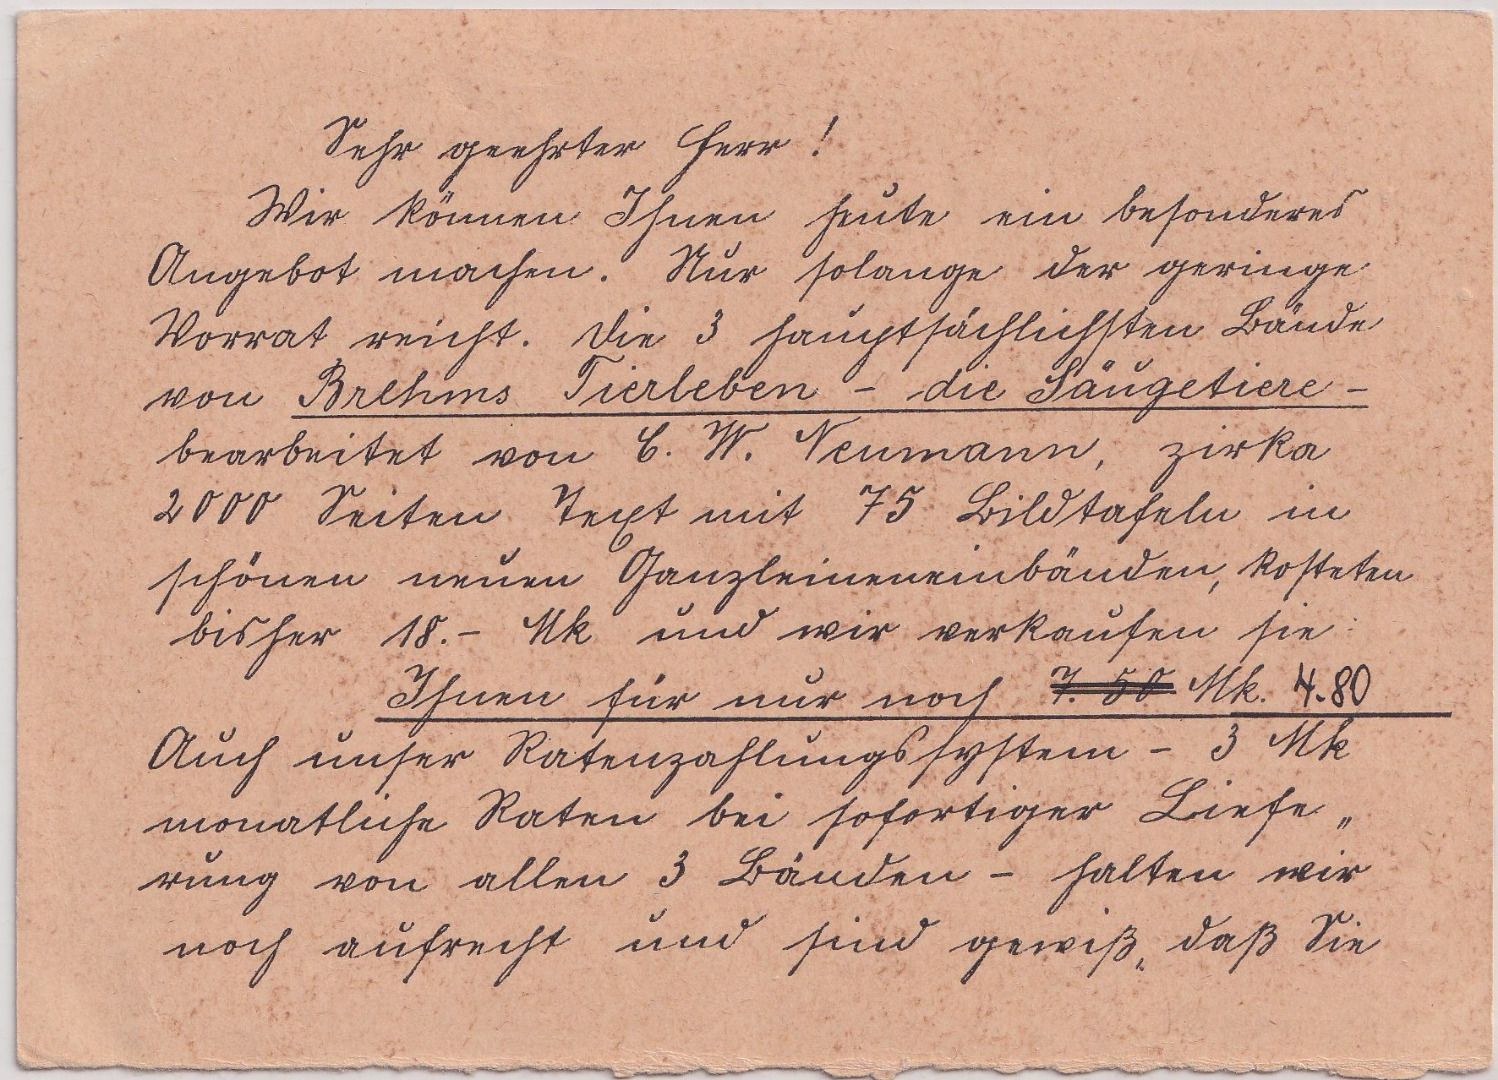 Sehr geehrter Herr!
Wir können Ihnen heute ein besonderes
Angebot machen. Nur solange der geringe
Vorrat reicht. Die 3 hauptsächlichsten Bände
von Brehms Tierleben - die Säugetiere -
bearbeitet von C. W. Neumann, zirka
2000 Seiten Text mit 75 Bildtafeln in
schönen neuen Ganzleineneinbänden, kosteten
bisher 18.- Mk und wir verkaufen sie
Ihnen für nur noch 7.50 Mk. 4.80
Auch unser Ratenzahlungssystem - 3 Mk
monatliche Raten bei sofortiger Liefe„
rung von allen 3 Bänden - halten wir
noch aufrecht und sind gewiß, daß Sie